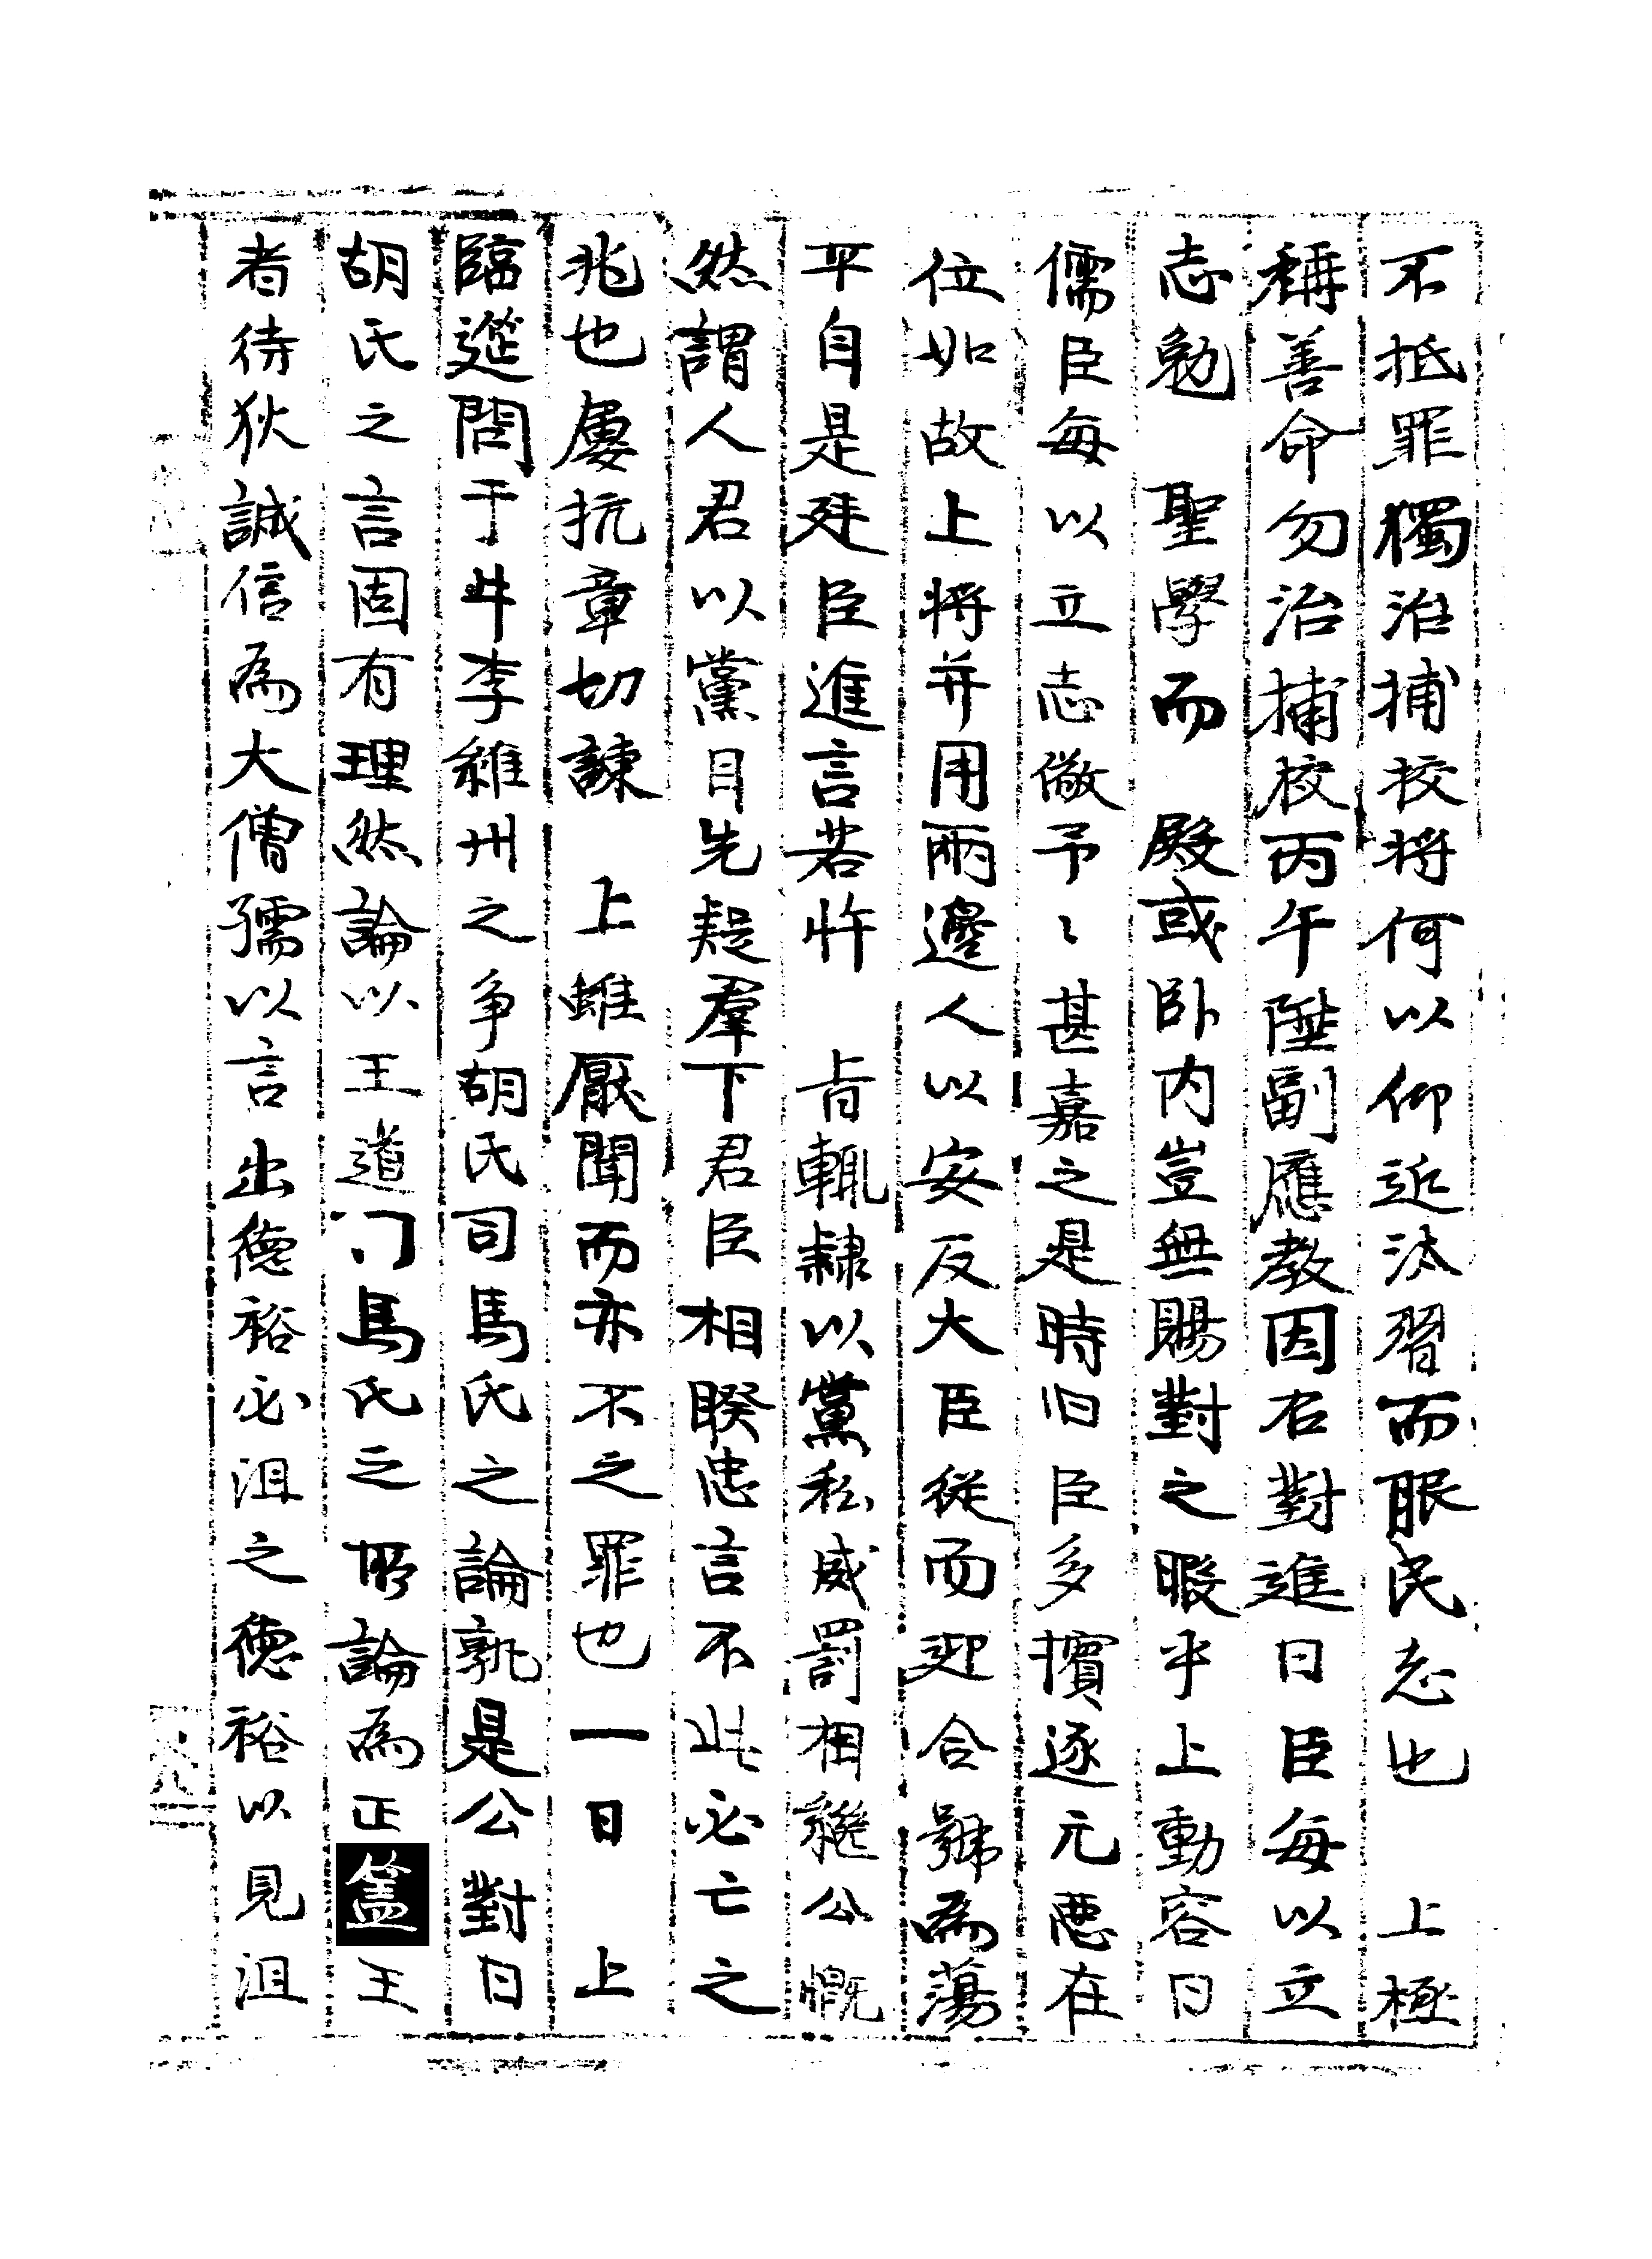 不抵罪獨治捕校將何以仰近汰習而眼民志也 上極
稱善命勿治捕校丙午陞副應教因召對進曰臣每以立
志勉 聖學而 殿或卧內豈無賜對之暇乎上動容曰
儒臣每以立志儆予〻甚嘉之是時旧臣多擯逐元惡在
位如故上將并用兩邊人以安反大臣從而迎合號爲蕩
平自是廷臣進言若忤 旨輒隷以黨私威罰相繼公慨
然謂人君以黨目先疑羣下君臣相睽忠言不此必亡之
兆也屢抗章切諫 上雖厭聞而亦不之罪也一日 上
臨筵問于牛李維州之爭胡氏司馬氏之論孰是公對曰
胡氏之言固有理然論以王道司馬氏之所論爲正盖王
者待狄誠信爲大僧孺以言出德裕必沮之德裕以見沮